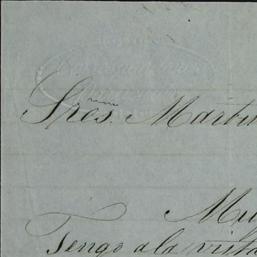 Sres. Martin
Mu
Tengo a la vista